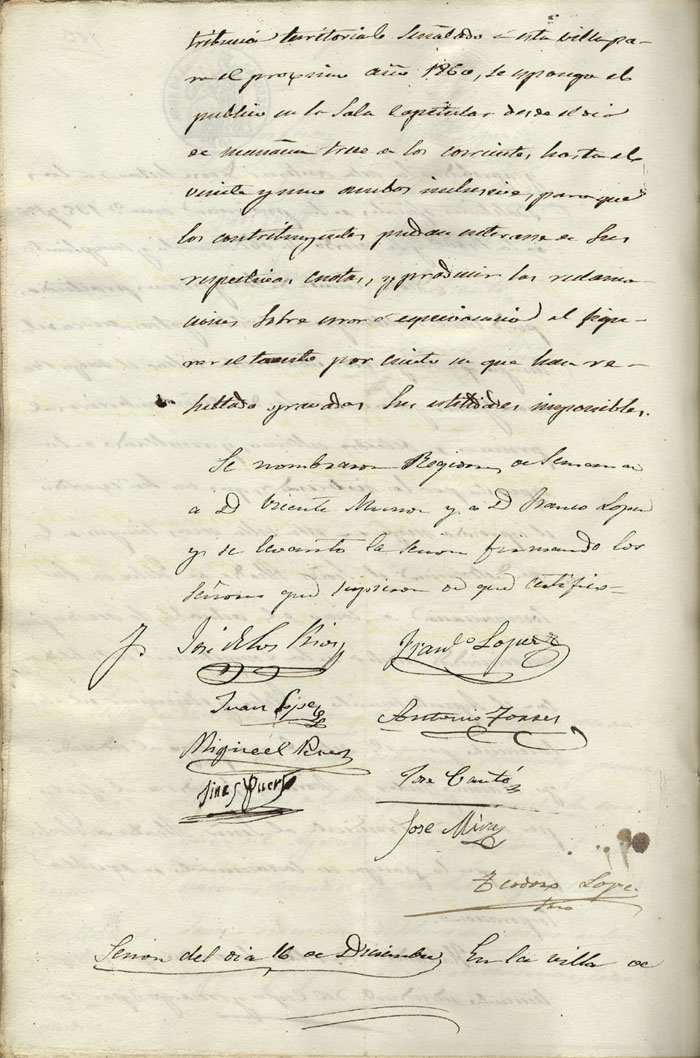 tribución territorial señalado a esta villa pa-
ra el proximo año 1860, se esponga al
publico en la Sala Capitular desde el dia
de mañana trece de los corrientes hasta el
veinte y uno ambos inclusive, para que
los contribuyentes puedan enterarse de sus
respectivas cuotas, y producir las reclama-
ciones sobre error o equivocacion al figu-
rar el tanto por ciento en que han re-
sultado gravadas sus utilidades imponibles.
Se nombraron Regidores de Semana
a D Vicente Munor y a D Franco Lopez
y se levanto la sesion firmando los
señores que supieron de que certifico-
José de los Rios
Franco Lopez
Juan Lopez
Antonio Torres
Miguel Ruez
Jose Cantó
Gines Puerto
Jose Mira
Teodoro Lopez
Srio
Sesion del dia 16 de Diciembre En la villa de